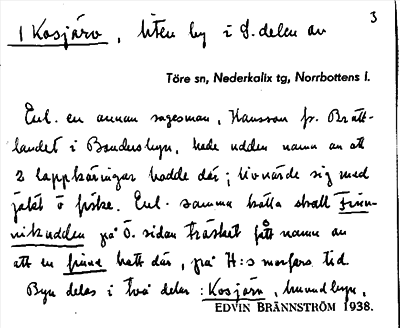 3
1 Kosjärv, liten by i S. delen av
Töre sn, Nederkalix tg, Norrbottens l.
Enl. en annan sagesman, Hansson fr. Brätt-
landet i Bondersbyn, hade udden namn av att
2 lappkäringar hodde där; livnärde sig med
jakt o fiske. Enl. samma källa skall Finn-
vikudden på Ö. sidan träsket fått namn av
att en finne haft där, på H:s morfars tid.
Byn delas i två delar: Kosjärv, huvudbyn,
EDVIN BRÄNNSTRÖM 1938.